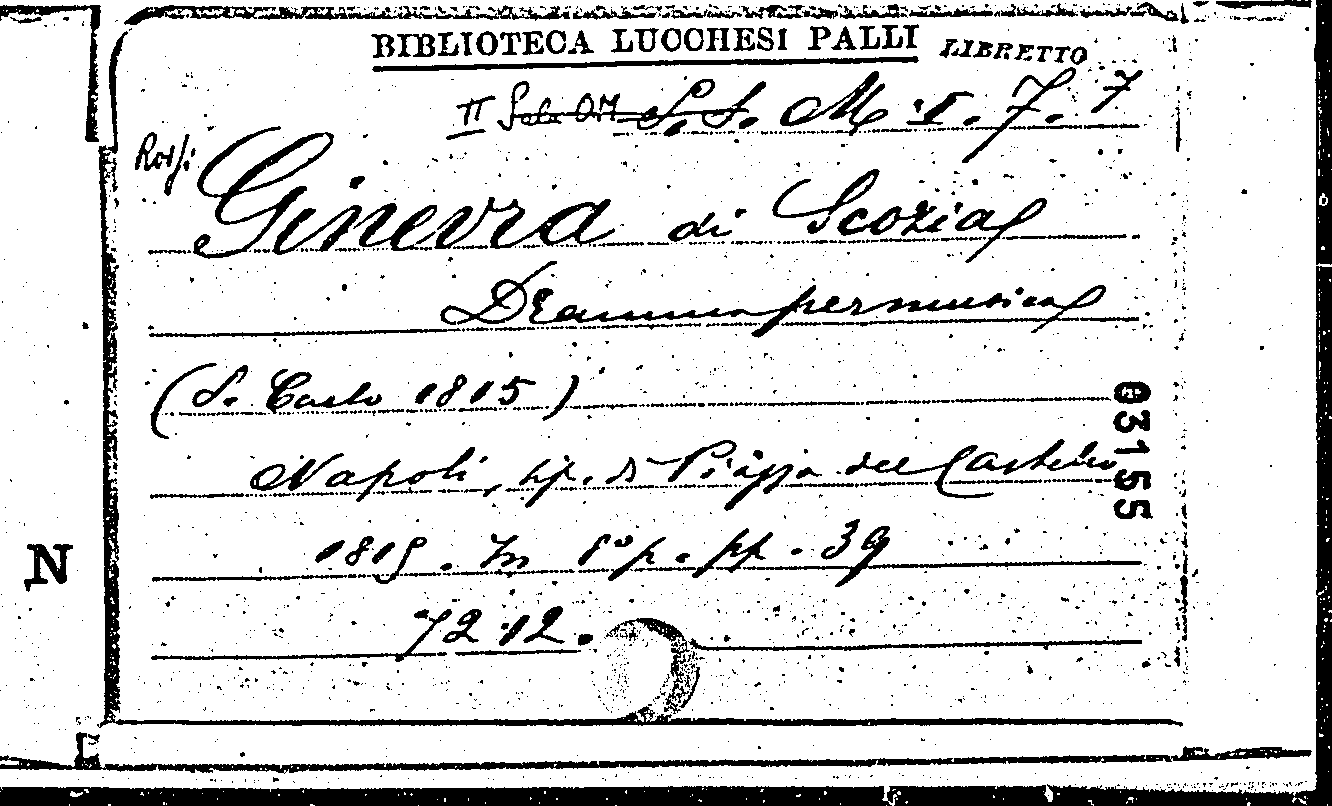 BIBLIOTECA LUCCHESI PALLI LIBRETTO
II Sala OM S.S. M. I. 7. 7
Rossi
Ginevra di Scozia
Dramma per musica
(S. Carlo 1815)
Napoli, tip. di Piazza del Castello
1815. In 8° p. pp. 39
72.12.
03155
N